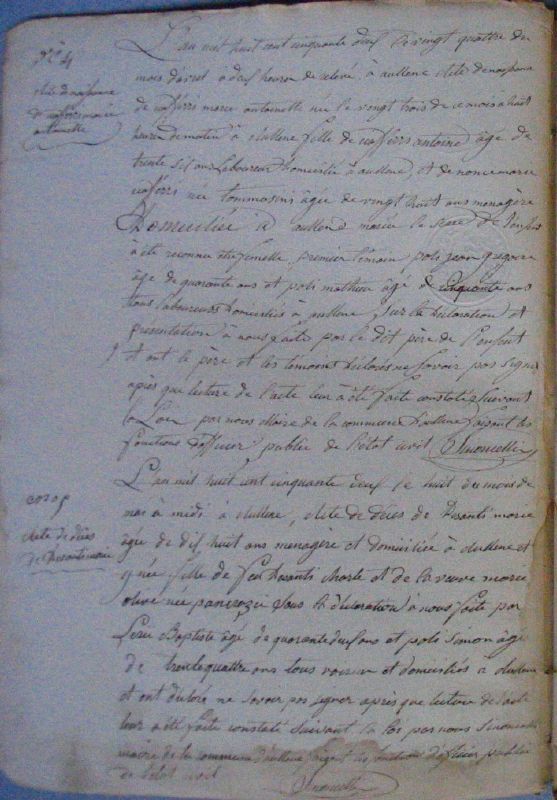 L'an mil huit cent cinquante deux le vingt quattre du
mois d'avril à deux heures de relevé, à aullene acte de naissance
de marie antoinette née le vingt trois de ce mois à huit
heures de matin à Aullene fille de antoine âgé de
trente six ans Laboureur domicilié à aullene et de marie
née tommasini âgée de vingt huit ans menagère
Domiciliée à aullene mariée le sexe de l'enfant
à été reconnu etre femelle, premier témoin poli jean gregoire
âge de quarante ans et poli mathieu âgé de cinquante ans
tous laboureurs domiciliés à aullene, sur la déclaration et
presentation à nous faite par le dit père de l'enfant
et ont le père et les témoins déclarés ne savoir pas signer
après que lecture de l'acte leur à été faite constaté suivant
la Loi par nous Maire de la commune d'aullene faisant les
fonctions d'officier public de l'état civil
L'an mil huit cent cinquante deux le huit du mois de
mai à midi à Aullene, Acte de décès de marie
âge de dix huit ans menagère et domiciliée à Aullene et
y née fille de feu et de la veuve marie
née sous la déclaration à nous faite par
Baptiste âge de quarante deux ans et poli Simon âgé
de trente quattre ans tous voisins et domiciliés à Aullene
et ont déclaré ne savoir pas signer après que lecture de l'acte
leur a été faite constaté suivant la loi par nous
maire de la commune d'aullene faisant les fonctions d'officier public
de l'état civil
N° 4
Acte de naissance
de marie
antoinette
Acte de décès
de marie